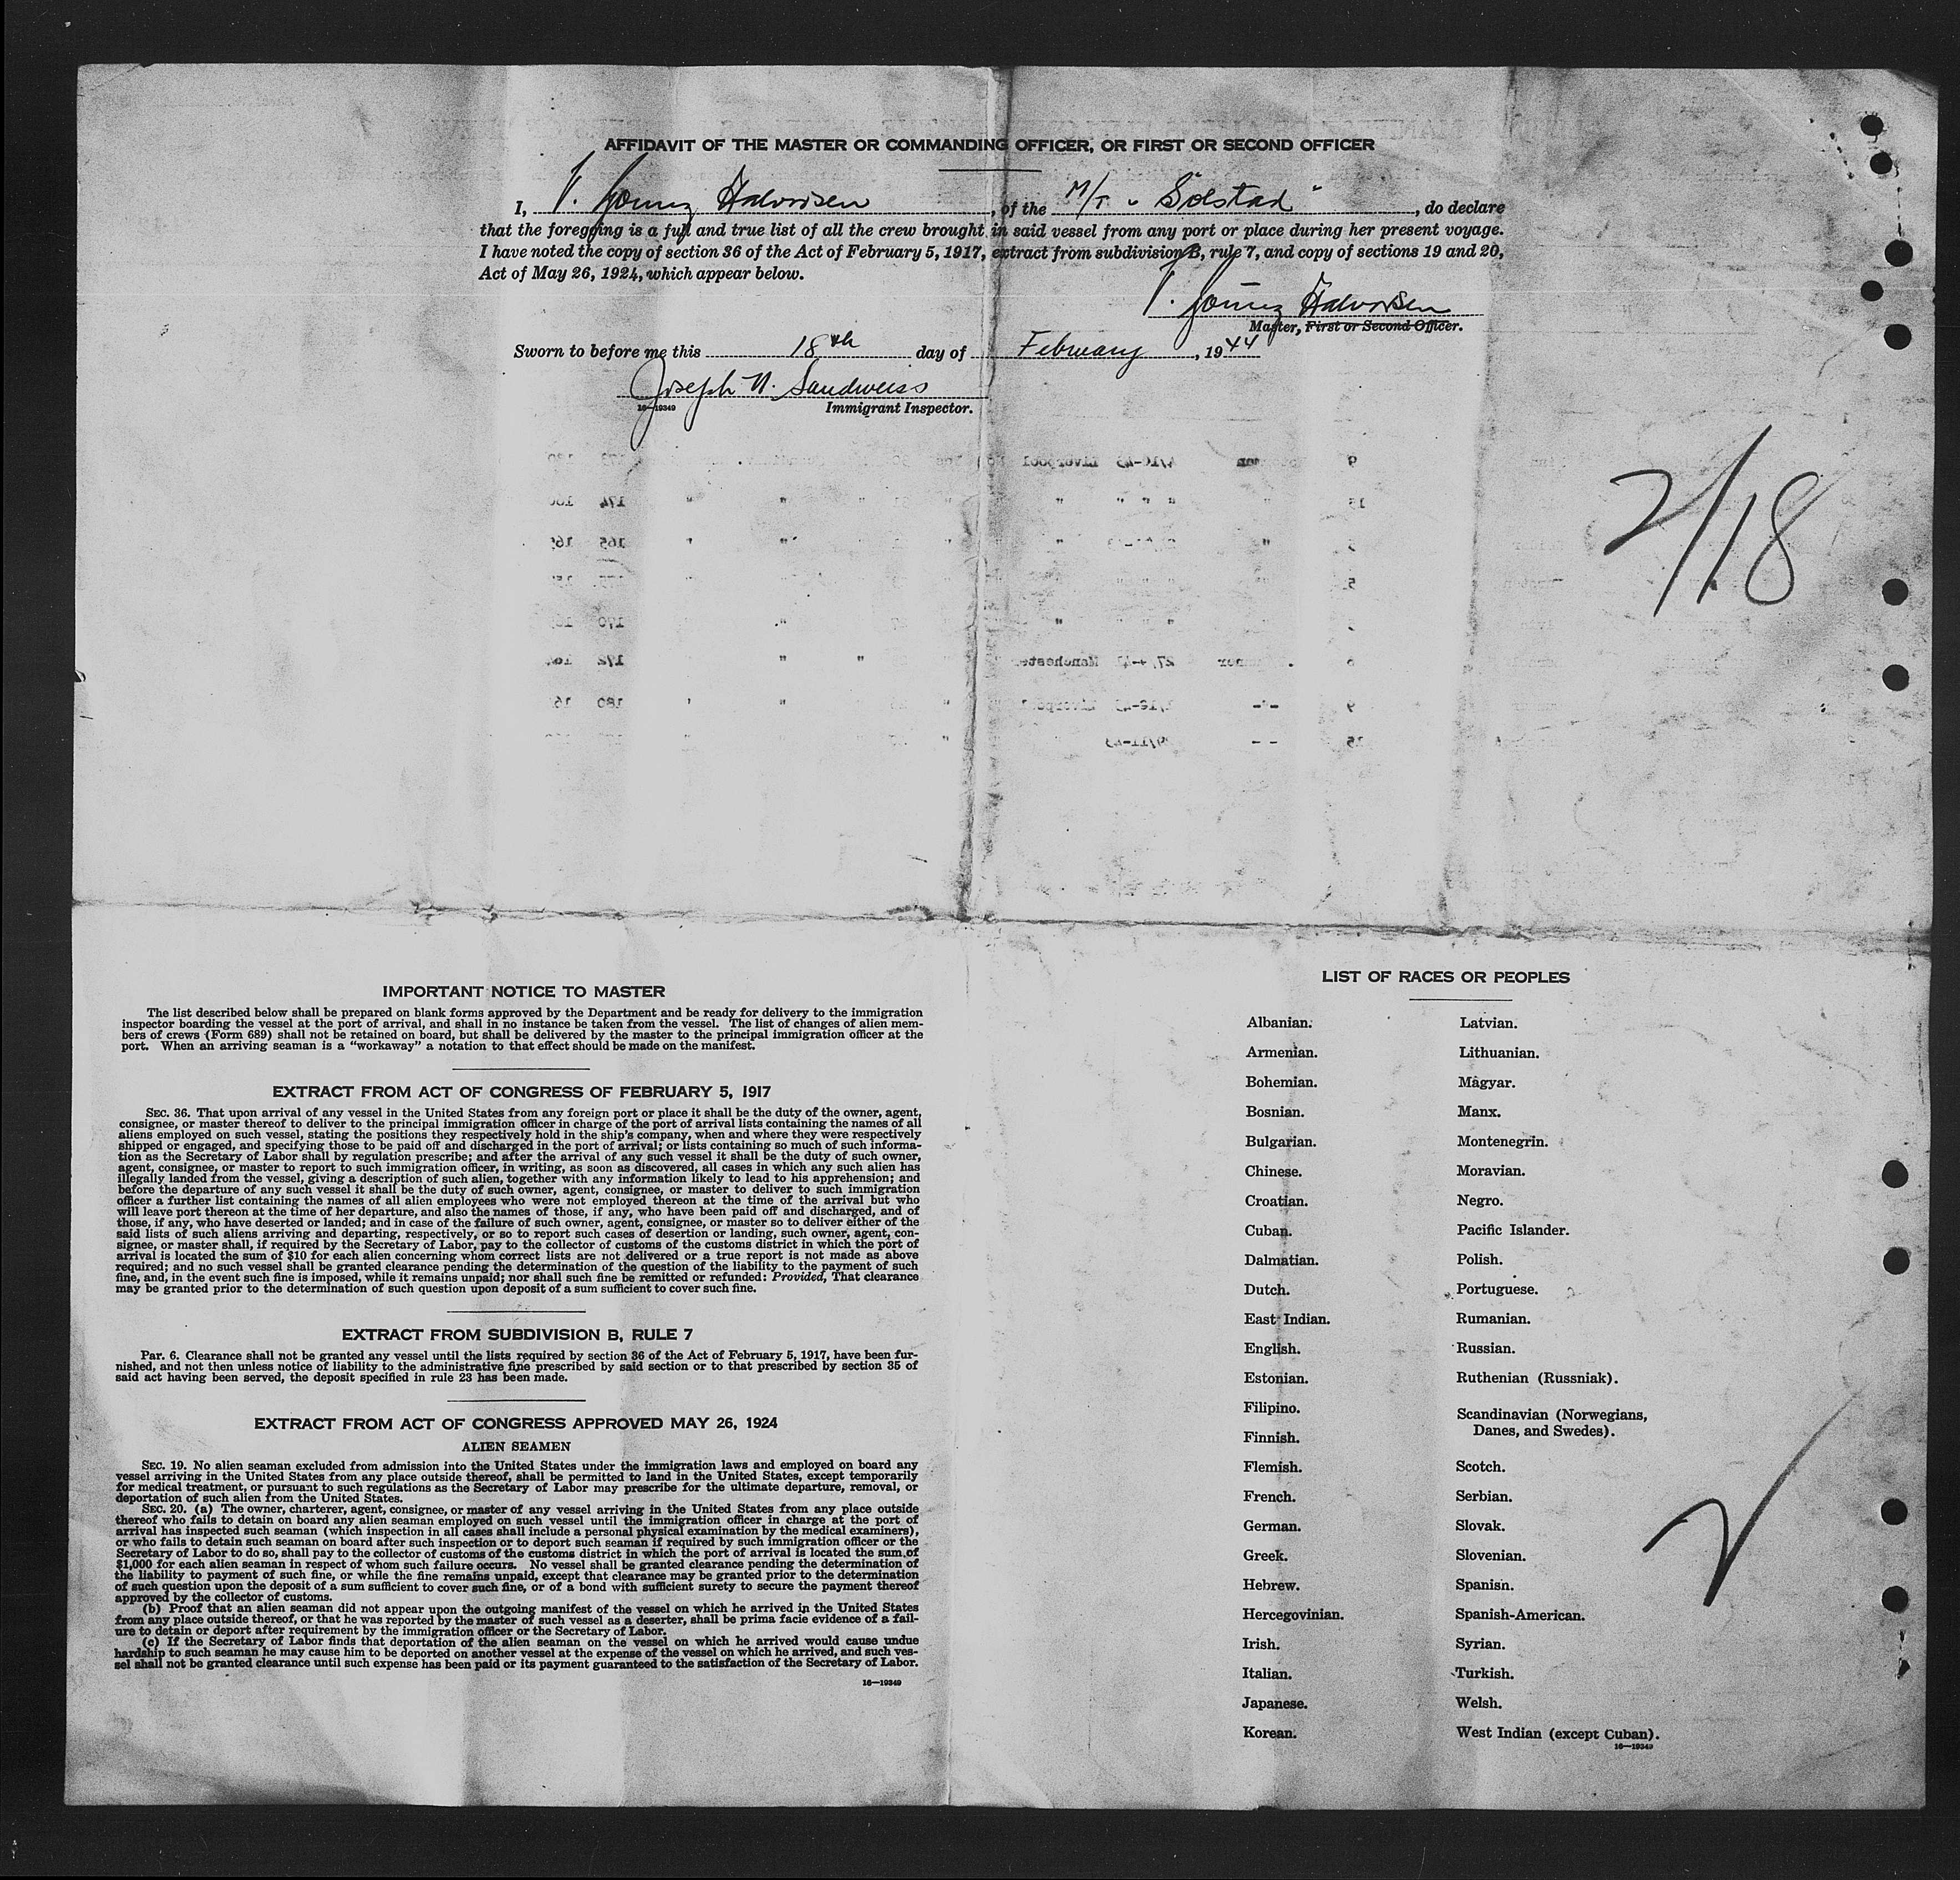 AFFIDAVIT OF THE MASTER OR COMMANDING OFFICER, OR FIRST OR SECOND OFFICER
I, V. Halvorsen, of the M/T "Solstad", do declare
that the foregoing is a full and true list of all the crew brought in said vessel from any port or place during her present voyage.
I have noted the copy of section 36 of the Act of February 5, 1917, extract from subdivision B, rule 7, and copy of sections 19 and 20,
Act of May 26, 1924, which appear below.
V. Halvorsen
Master, First or Second Officer.
Sworn to before me this 18th day of February, 1944
Joseph N. Sandweiss
16—19349 Immigrant Inspector.
2/18
IMPORTANT NOTICE TO MASTER
The list described below shall be prepared on blank forms approved by the Department and be ready for delivery to the immigration
inspector boarding the vessel at the port of arrival, and shall in no instance be taken from the vessel. The list of changes of alien mem-
bers of crews (Form 689) shall not be retained on board, but shall be delivered by the master to the principal immigration officer at the
port. When an arriving seaman is a "workaway" a notation to that effect should be made on the manifest.
EXTRACT FROM ACT OF CONGRESS OF FEBRUARY 5, 1917
SEC. 36. That upon arrival of any vessel in the United States from any foreign port or place it shall be the duty of the owner, agent,
consignee, or master thereof to deliver to the principal immigration officer in charge of the port of arrival lists containing the names of all
aliens employed on such vessel, stating the positions they respectively hold in the ship's company, when and where they were respectively
shipped or engaged, and specifying those to be paid off and discharged in the port of arrival; or lists containing so much of such informa-
tion as the Secretary of Labor shall by regulation prescribe; and after the arrival of any such vessel it shall be the duty of such owner,
agent, consignee, or master to report to such immigration officer, in writing, as soon as discovered, all cases in which any such alien has
illegally landed from the vessel, giving a description of such alien, together with any information likely to lead to his apprehension; and
before the departure of any such vessel it shall be the duty of such owner, agent, consignee, or master to deliver to such immigration
officer a further list containing the names of all alien employees who were not employed thereon at the time of the arrival but who
will leave port thereon at the time of her departure, and also the names of those, if any, who have been paid off and discharged, and of
those, if any, who have deserted or landed; and in case of the failure of such owner, agent, consignee, or master so to deliver either of the
said lists of such aliens arriving and departing, respectively, or so to report such cases of desertion or landing, such owner, agent, con-
signee, or master shall, if required by the Secretary of Labor, pay to the collector of customs of the customs district in which the port of
arrival is located the sum of $10 for each alien concerning whom correct lists are not delivered or a true report is not made as above
required; and no such vessel shall be granted clearance pending the determination of the question of the liability to the payment of such
fine, and, in the event such fine is imposed, while it remains unpaid; nor shall such fine be remitted or refunded: Provided, That clearance
may be granted prior to the determination of such question upon deposit of a sum sufficient to cover such fine.
EXTRACT FROM SUBDIVISION B, RULE 7
Par. 6. Clearance shall not be granted any vessel until the lists required by section 36 of the Act of February 5, 1917, have been fur-
nished, and not then unless notice of liability to the administrative fine prescribed by said section or to that prescribed by section 35 of
said act having been served, the deposit specified in rule 23 has been made.
EXTRACT FROM ACT OF CONGRESS APPROVED MAY 26, 1924
ALIEN SEAMEN
SEC. 19. No alien seaman excluded from admission into the United States under the immigration laws and employed on board any
vessel arriving in the United States from any place outside thereof, shall be permitted to land in the United States, except temporarily
for medical treatment, or pursuant to such regulations as the Secretary of Labor may prescribe for the ultimate departure, removal, or
deportation of such alien from the United States.
SEC. 20. (a) The owner, charterer, agent, consignee, or master of any vessel arriving in the United States from any place outside
thereof who fails to detain on board any alien seaman employed on such vessel until the immigration officer in charge at the port of
arrival has inspected such seaman (which inspection in all cases shall include a personal physical examination by the medical examiners),
or who fails to detain such seaman on board after such inspection or to deport such seaman if required by such immigration officer or the
Secretary of Labor to do so, shall pay to the collector of customs of the customs district in which the port of arrival is located the sum of
$1,000 for each alien seaman in respect of whom such failure occurs. No vessel shall be granted clearance pending the determination of
the liability to payment of such fine, or while the fine remains unpaid, except that clearance may be granted prior to the determination
of such question upon the deposit of a sum sufficient to cover such fine, or of a bond with sufficient surety to secure the payment thereof
approved by the collector of customs.
(b) Proof that an alien seaman did not appear upon the outgoing manifest of the vessel on which he arrived in the United States
from any place outside thereof, or that he was reported by the master of such vessel as a deserter, shall be prima facie evidence of a fail-
ure to detain or deport after requirement by the immigration officer or the Secretary of Labor.
(c) If the Secretary of Labor finds that deportation of the alien seaman on the vessel on which he arrived would cause undue
hardship to such seaman he may cause him to be deported on another vessel at the expense of the vessel on which he arrived, and such ves-
sel shall not be granted clearance until such expense has been paid or its payment guaranteed to the satisfaction of the Secretary of Labor.
16—19349
LIST OF RACES OR PEOPLES
Albanian.
Armenian.
Bohemian.
Bosnian.
Bulgarian.
Chinese.
Croatian.
Cuban.
Dalmatian.
Dutch.
East Indian.
English.
Estonian.
Filipino.
Finnish.
Flemish.
French.
German.
Greek.
Hebrew.
Hercegovinian.
Irish.
Italian.
Japanese.
Korean.
Latvian.
Lithuanian.
Magyar.
Manx.
Montenegrin.
Moravian.
Negro.
Pacific Islander.
Polish.
Portuguese.
Rumanian.
Russian.
Ruthenian (Russniak).
Scandinavian (Norwegians,
Danes, and Swedes).
Scotch.
Serbian.
Slovak.
Slovenian.
Spanish.
Spanish-American.
Syrian.
Turkish.
Welsh.
West Indian (except Cuban).
16—19349